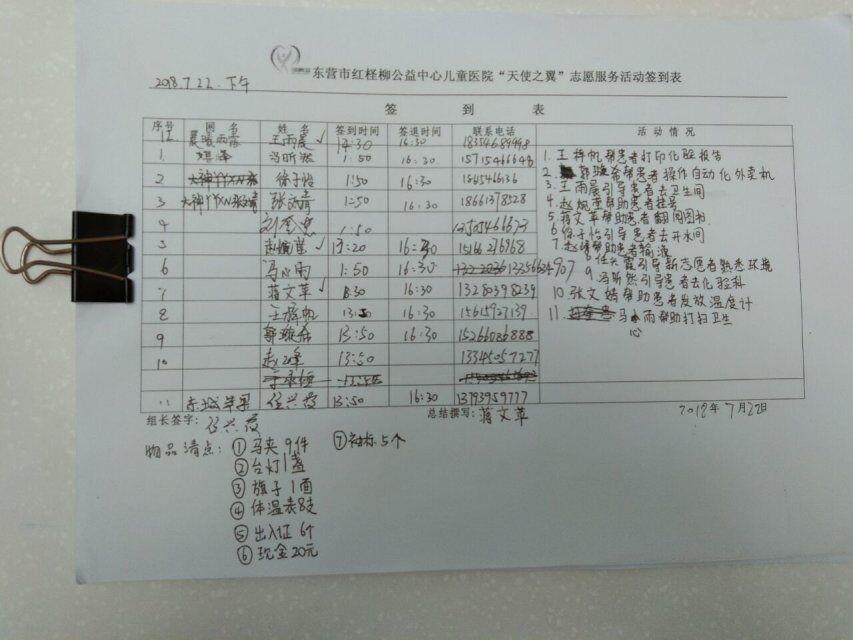 东营市红柽柳公益中心儿童医院“天使之翼”志愿服务活动签到表
2018.7.22.下午
签 到 表
序号 网名 姓名 签到时间 签退时间 联系电话 活动情况
12 晨曦雨露 王雨晨 ✓ 14:30 16:30
1 冯昕 1:50 16:30 15715466646
2 徐子怡 1:50 16:30 186546636
3 1:50 16:30 18661378528
4 1:50
5 赵 ✓ 13:20 16:30 15166276968
6 马心雨 1:50 16:30
7 蒋文革 ✓ 16:30 13280398239
8 王梓帆 16:30 15615927139
9 郭璇 13:50 16:30 15266086888
10 赵峰 13:50 13345057277
11 东城苹果 任兴霞 13:50 16:30 13793959777
1. 王梓帆帮患者打印化验报告
2. 郭璇 帮患者操作自动化外卖机
3. 王雨晨引导患者去卫生间
4. 赵 帮助患者挂号
5. 蒋文革帮助患者翻阅图书
6. 徐子怡引导患者去开水间
7. 赵峰帮助患者输液
8. 任兴霞引导新志愿者熟悉环境
9. 冯昕 引导患者去化验科
10. 张文 帮助患者发放温度计
11. 马心雨帮助打扫卫生
组长签字: 任兴霞 总结撰写: 蒋文革 2018年7月22日
物品清点: ① 马夹 9件 ⑦ 袖标 5个
② 台灯 1盏
③ 旗子 1面
④ 体温表 8支
⑤ 出入证 6个
⑥ 现金 20元